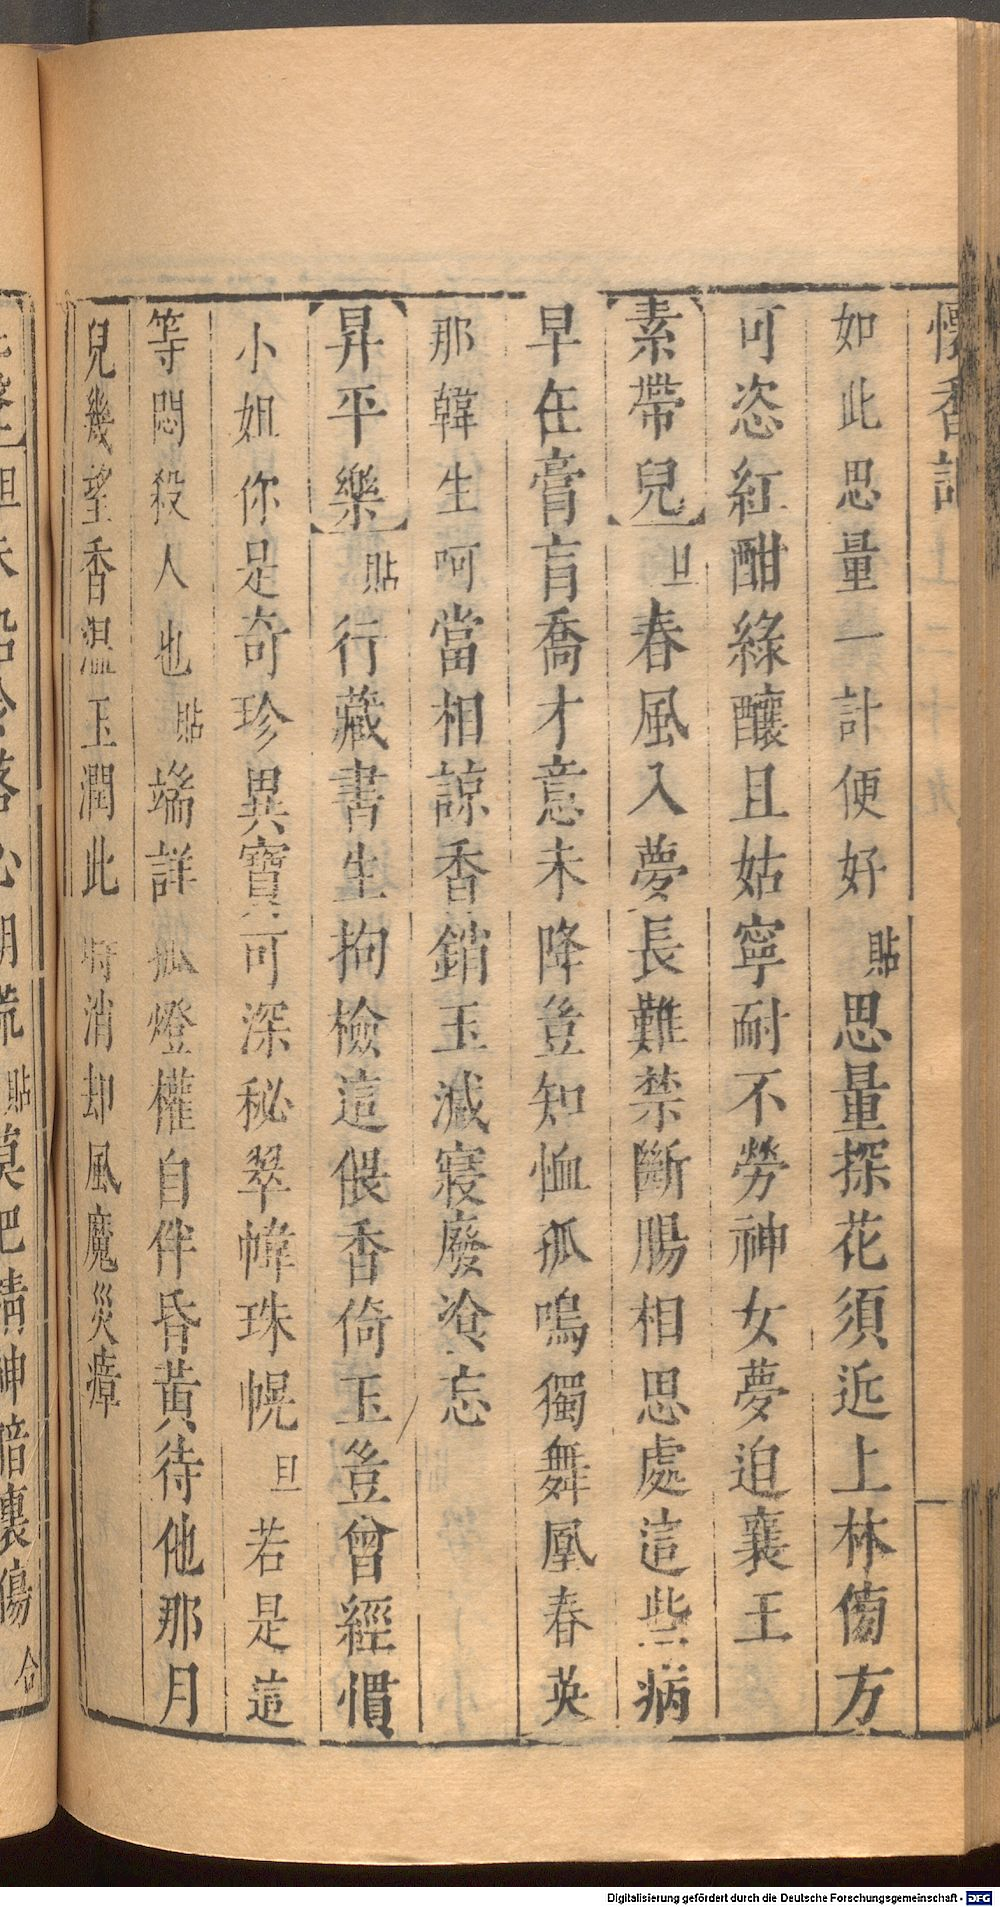 懷香記
如此思量一計便好貼思量探花須近上林傍方
可恣紅酣綠釀且姑寧耐不勞神女夢迫襄王
【素帶兒】旦春風入夢長難禁斷腸相思處這些病
早在膏肓喬才意未降豈知恤孤嗚獨舞凰春英
那韓生呵當相諒香銷玉減寢廢飡忘
【昇平樂】貼行藏書生拘檢這偎香倚玉豈曾經慣
小姐你是奇珍異寶可深秘翠幃珠幌旦若是這
等悶殺人也貼端詳孤燈權自伴昏黃待他那月
兒幾望香温玉潤此時消却風魔災瘴
旦
落
貼莫把精神暗裏傷合
Digitalisierung gefördert durch die Deutsche Forschungsgemeinschaft - DFG